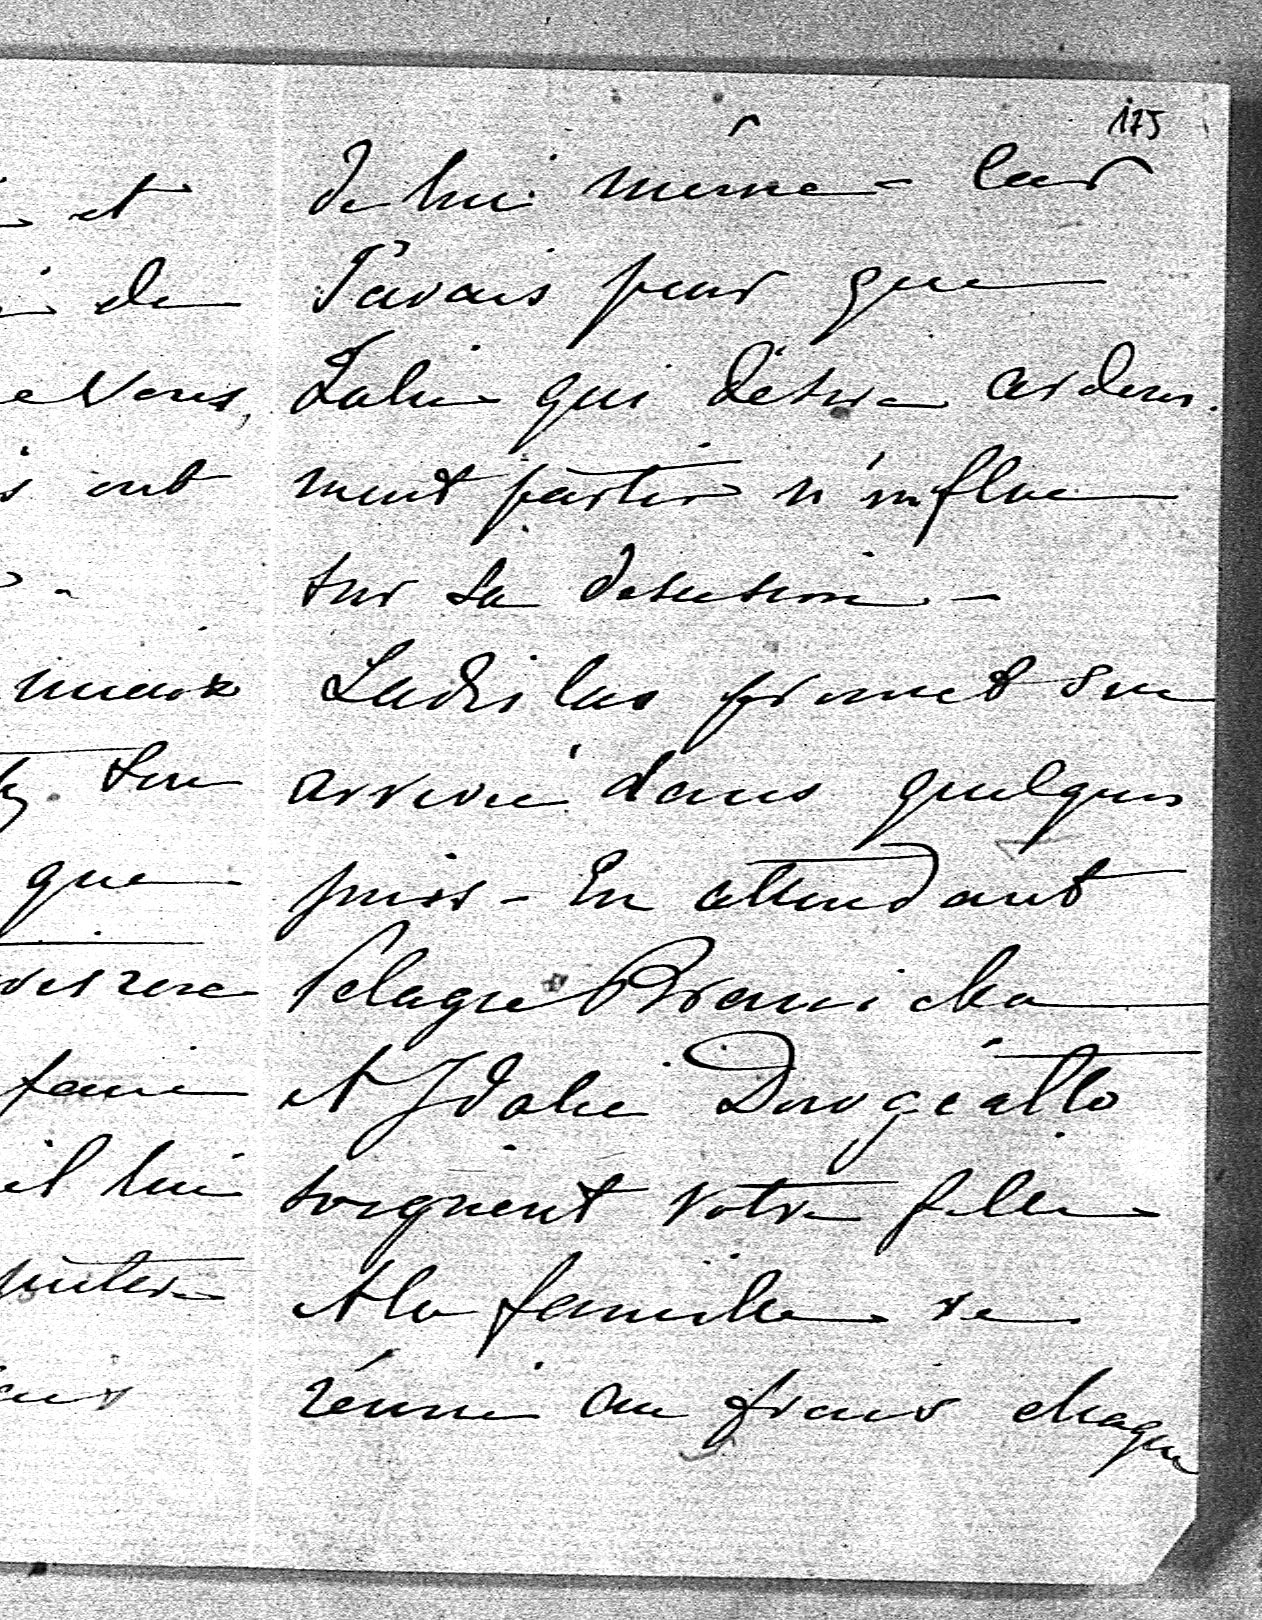 175
et
de
Vous,
ont
mieux
Son
que
faire
il lui
de lui même - Car
J'avais peur que
Julie qui désire ardem-
ment partir n'influe
sur sa décision -
Ladislas promet son
arrivée dans quelques
jours - En attendant
Pelagie Branicka
et Idalie
soignent votre fille
et la famille se
réunie au frais chaque